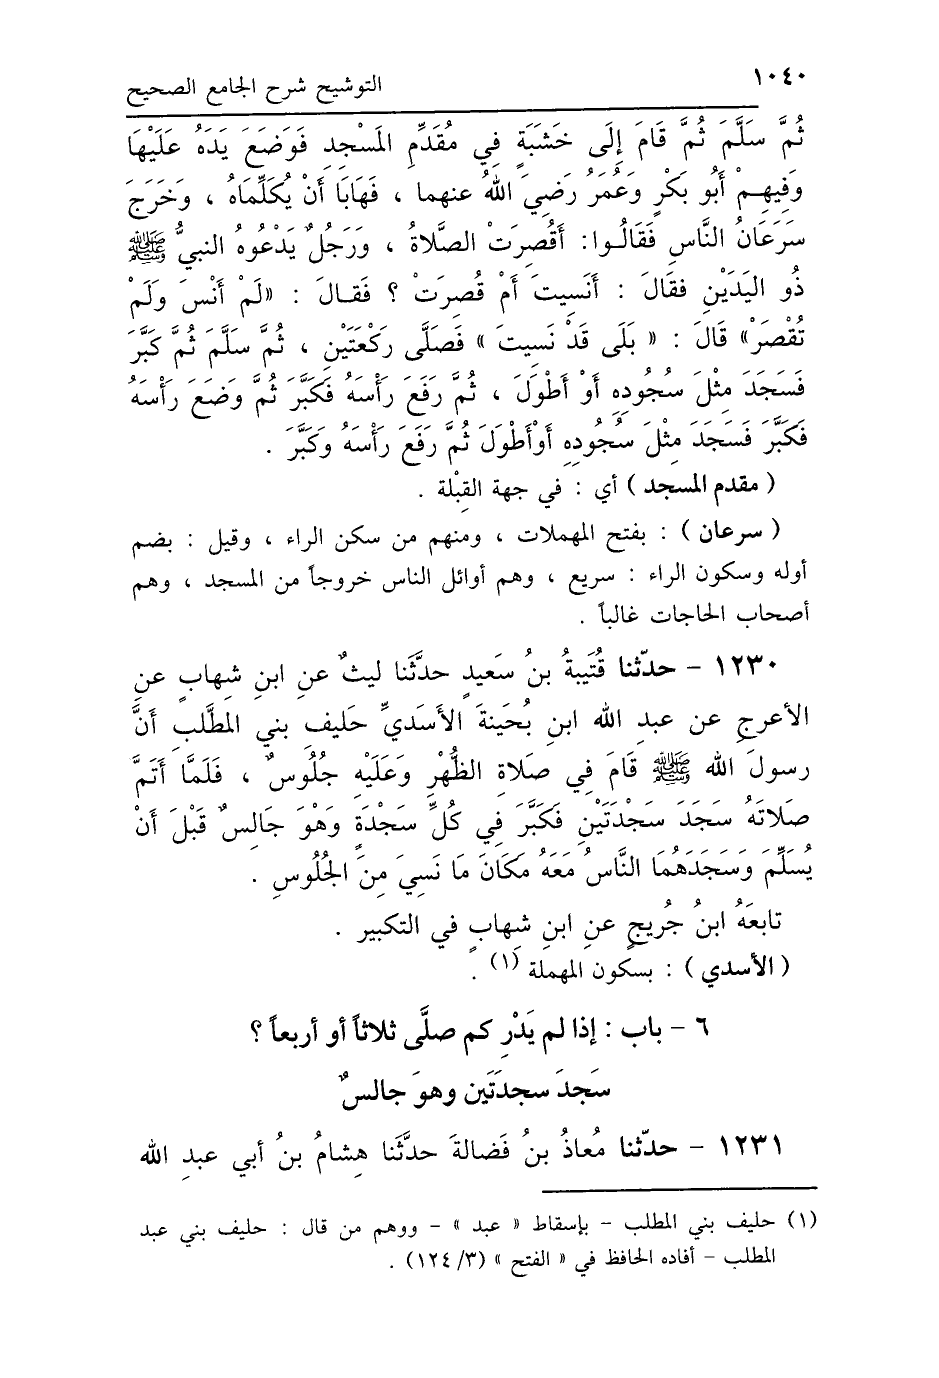 ١٠٤٠
التوشيح شرح الجامع الصحيح
ثُمَّ سَلَّمَ ثُمَّ قَامَ إِلَى خَشَبَةٍ فِي مُقَدَّمِ المَسْجِدِ فَوَضَعَ يَدَهُ عَلَيْهَا
وَفِيهِمْ أَبُو بَكْرٍ وَعُمَرُ رَضِيَ اللهُ عنهما ، فَهَابَا أَنْ يُكَلِّمَاهُ ، وَخَرَجَ
سَرَعَانُ النَّاسِ فَقَالُوا: أَقُصِرَتْ الصَّلاةُ ، وَرَجُلٌ يَدْعُوهُ النبيُّ ﷺ
ذُو اليَدَيْنِ فقَالَ : أَنَسِيتَ أَمْ قُصِرَتْ ؟ فَقَالَ : «لَمْ أَنْسَ وَلَمْ
تُقْصَرْ» قَالَ : « بَلَى قَدْ نَسِيتَ » فَصَلَّى رَكْعَتَيْنِ ، ثُمَّ سَلَّمَ ثُمَّ كَبَّرَ
فَسَجَدَ مِثْلَ سُجُودِهِ أَوْ أَطْوَلَ ، ثُمَّ رَفَعَ رَأْسَهُ فَكَبَّرَ ثُمَّ وَضَعَ رَأْسَهُ
فَكَبَّرَ فَسَجَدَ مِثْلَ سُجُودِهِ أَوْأَطْوَلَ ثُمَّ رَفَعَ رَأْسَهُ وَكَبَّرَ .
( مقدم المسجد ) أي : في جهة القِبْلة .
( سرعان ) : بفتح المهملات ، ومنهم من سكن الراء ، وقيل : بضم
أوله وسكون الراء : سريع ، وهم أوائل الناس خروجاً من المسجد ، وهم
أصحاب الحاجات غالباً .
١٢٣٠ - حدّثنا قُتَيبةُ بنُ سَعيدٍ حدَّثَنا ليثٌ عنِ ابنِ شهابٍ عنِ
الأعرجِ عن عبدِ الله ابنِ بُحَينةَ الأَسَديِّ حَليفِ بني المطَّلبِ أنَّ
رسولَ الله ﷺ قَامَ فِي صَلَاةِ الظُّهْرِ وَعَلَيْهِ جُلُوسٌ ، فَلَمَّا أَتَمَّ
صَلَاتَهُ سَجَدَ سَجْدَتَيْنِ فَكَبَّرَ فِي كُلِّ سَجْدَةٍ وَهْوَ جَالِسٌ قَبْلَ أَنْ
يُسَلِّمَ وَسَجَدَهُمَا النَّاسُ مَعَهُ مَكَانَ مَا نَسِيَ مِنَ الجُلُوسِ .
تابعَهُ ابنُ جُريجٍ عنِ ابنِ شهابٍ في التكبير .
( الأسدي ) : بسكون المهملة (١) .
٦ - باب : إذا لم يَدْرِ كم صلَّى ثلاثاً أو أربعاً ؟
سَجدَ سجدَتَين وهوَ جالسٌ
١٢٣١ - حدّثنا مُعاذُ بنُ فَضالةَ حدَّثَنا هِشامُ بنُ أبي عبدِ الله
(١) حليف بني المطلب - بإسقاط « عبد » - ووهم من قال : حليف بني عبد
المطلب - أفاده الحافظ في « الفتح » (٣/ ١٢٤) .